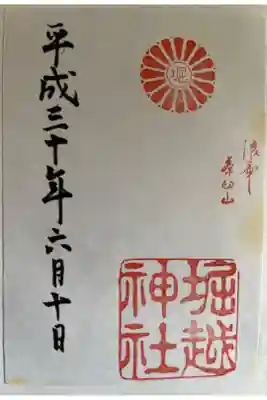 堀
茶臼山
堀越
神社
平成三十年六月十日